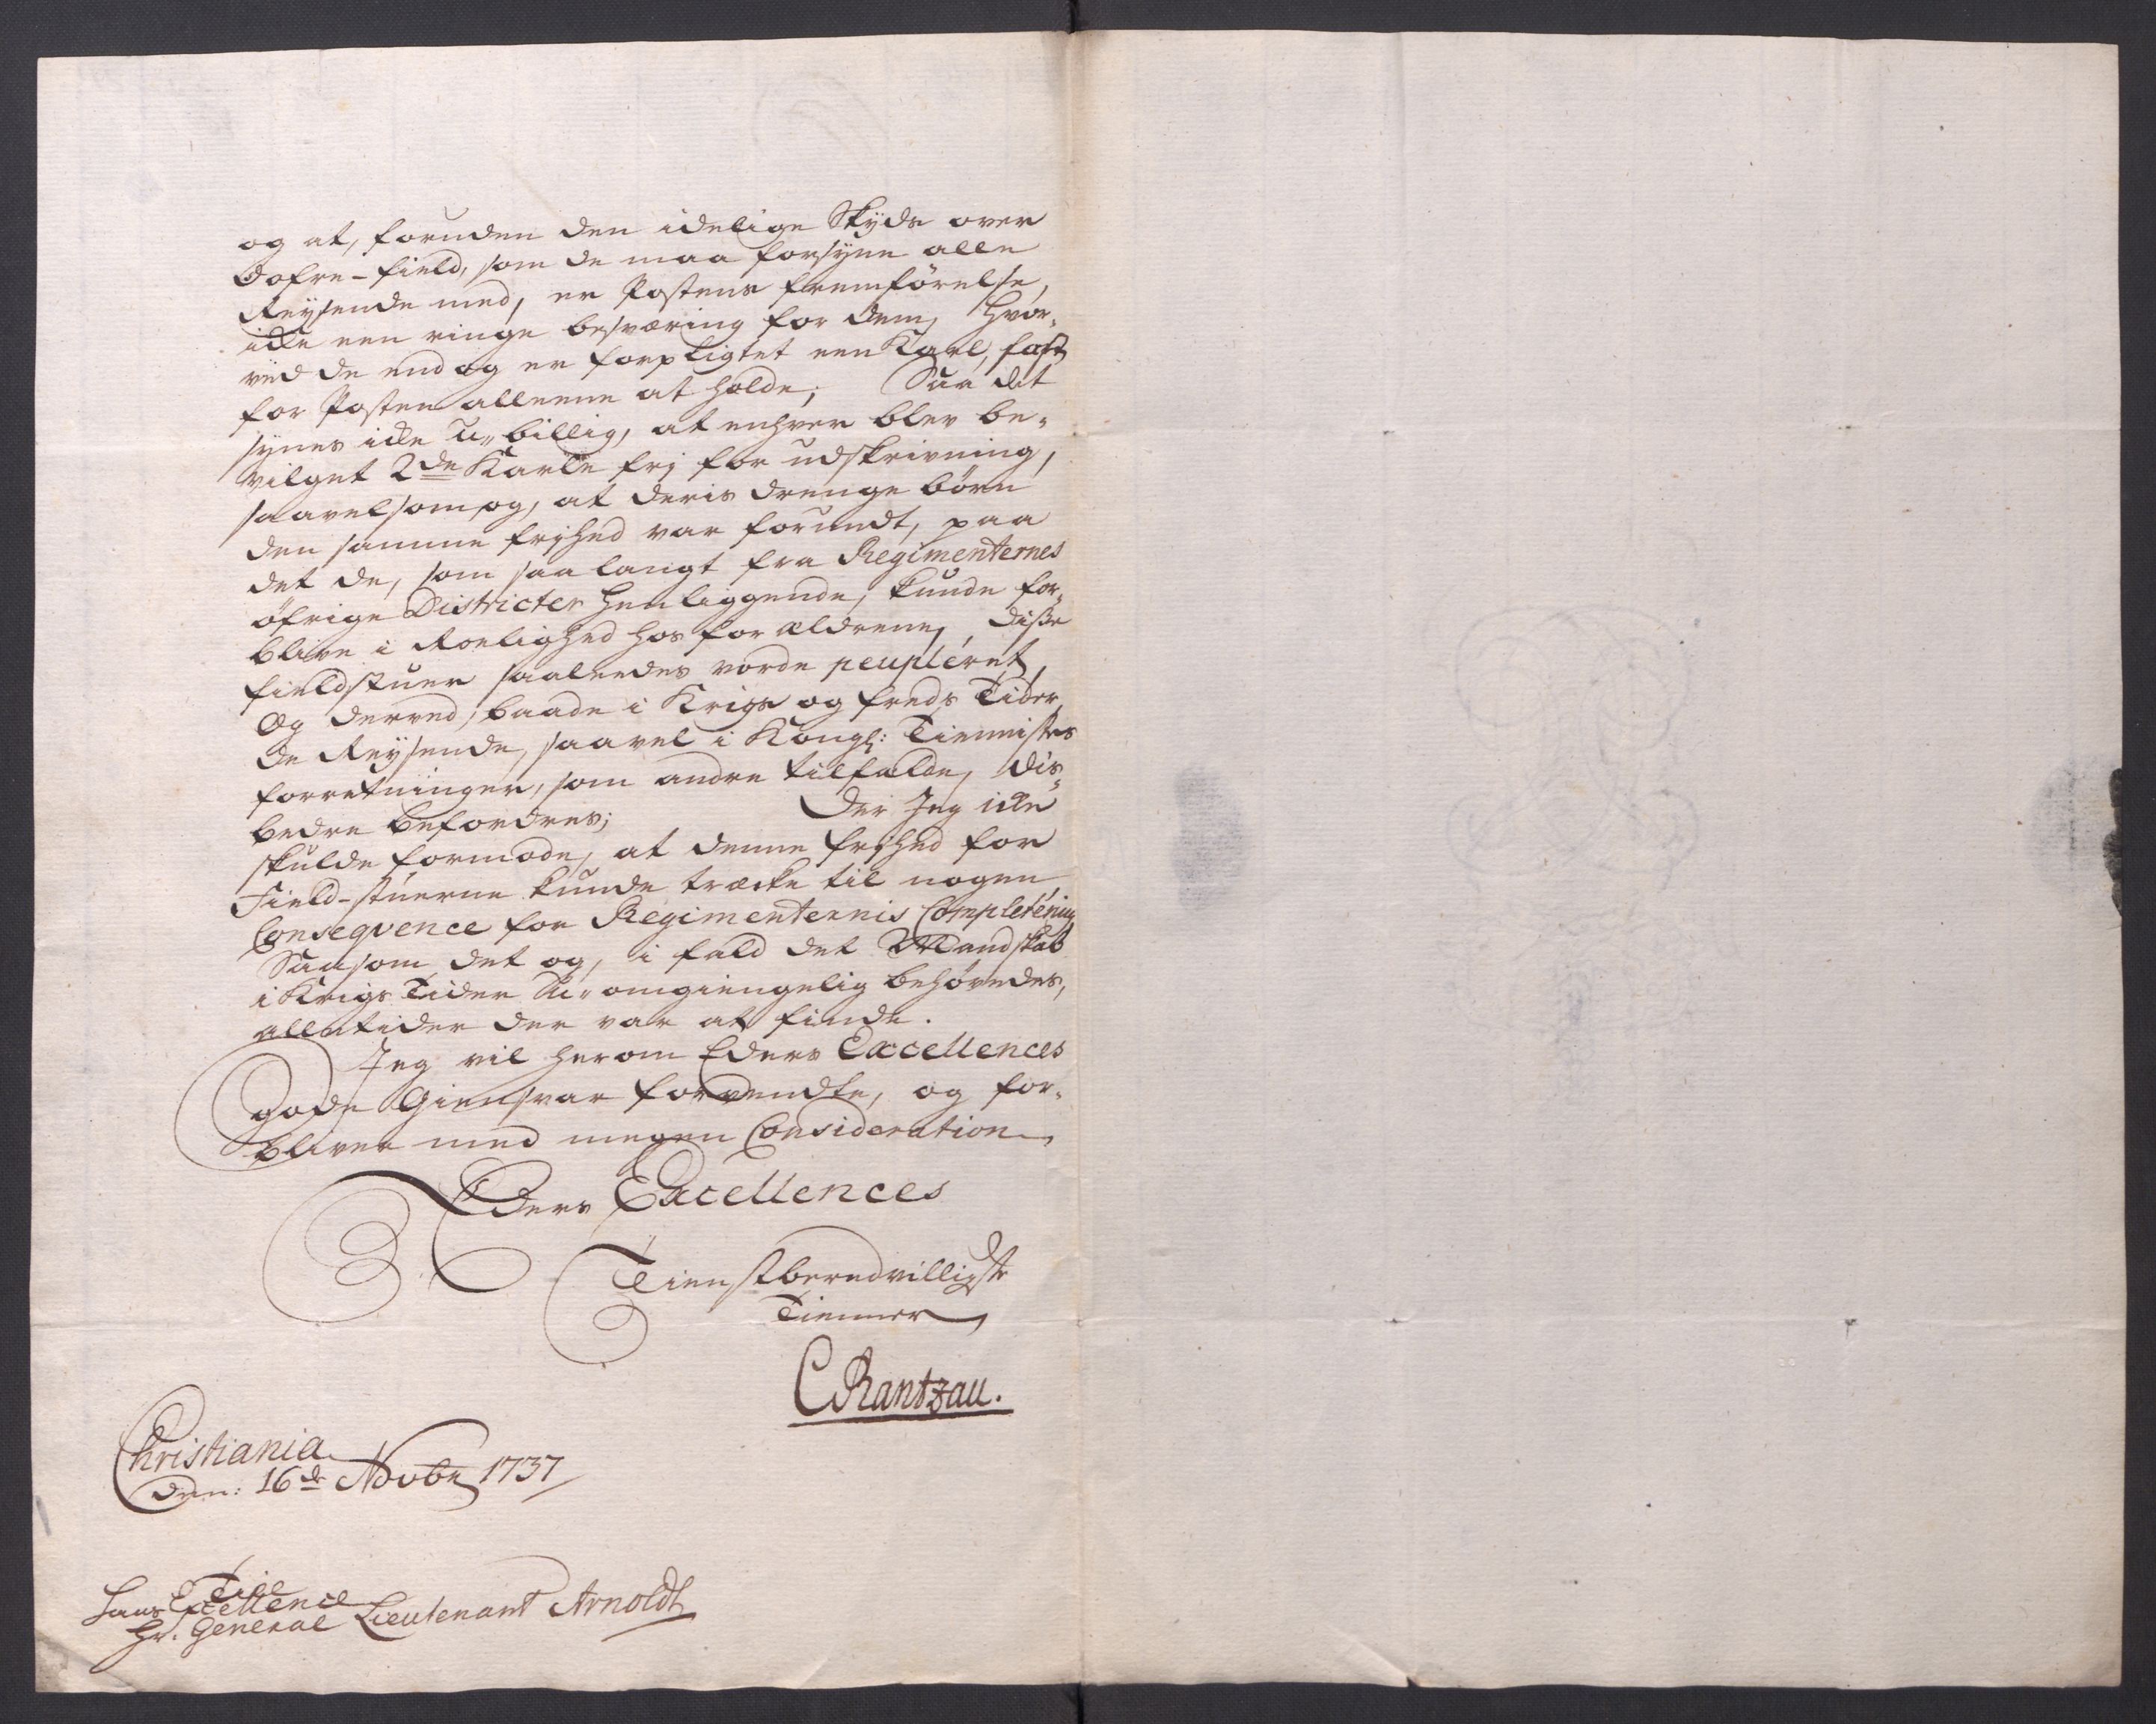 og at, foruden den idelige Skyds over
Dofre-field, som de maa forsyne alle
Reysende med, er Postens fremförelse,
icke een ringe besværing for dem, hvor-
ved de endog er forpligtet een Karl, fast
for Posten alleene at holde; Saa det
synes icke u-billig, at enhver blev be-
vilget 2de Karle frj for udskrivning,
saavelsom og, at deris drenge börn
den samme frjhed var forundt, paa
det de, som saa langt fra Regimenternes
öfrige Districter henliggende, kunde for-
blive i Roelighed hos forældrene, disse
fieldstuer saaleedes vorde peupleret,
Og derved, baade i Krigs og freds Tider,
de Reysende, saavel i Kongl: Tiennistes
forretninger, som andre tilfælde, dis-
bedre befordres; Der Jeg icke
skulde formode, at denne frjhed for
Field-stuerne kunde træcke til nogen
Conseqvence for Regimenternis Completéring
Saasom det og, i fald det Mandskab
i Krigs Tider U-omgiengelig behövedes,
alletider der var at finde.
Jeg vil herom Eders Excellences
gode Giensvar forvendte, og for-
bliver med megen Consideration
Eders Excellences
Tienstberedvilligste
Tienner
CRantzau.
Christiania
den: 16de Novbr 1737
Til
Hans Excellence
Hr. General Lieutenant Arnoldt